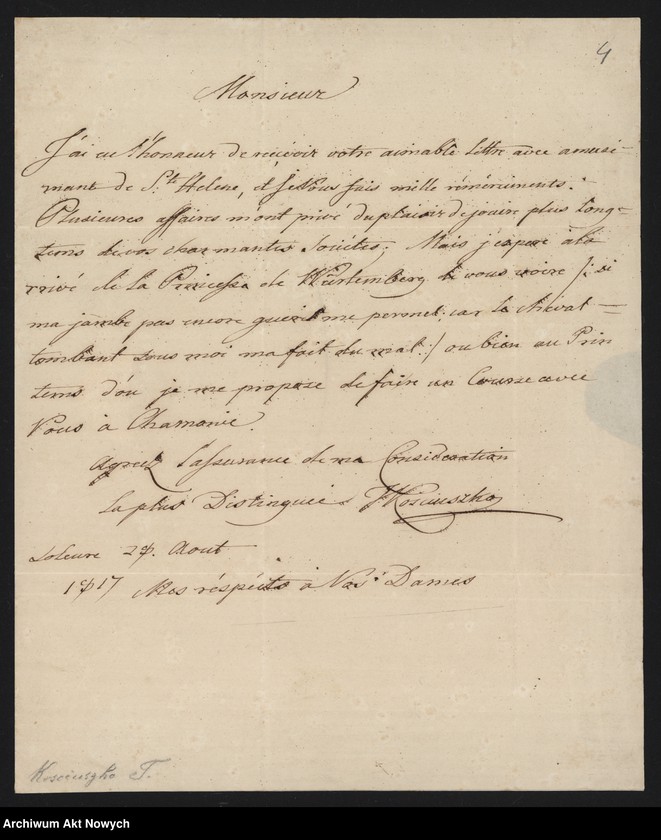 4
Monsieur
J'ai eu l'honneur de reçevoir votre aimable lettre avec amusi-
mant de S.te Helene, et je Vous fais mille rémérciments.
Plusieures affaires m'ont privé du plaisir de jouire plus long=
tems de vos charmantes Sociétés; Mais j'espere à la
rivé de la Princesse de Würtemberg de vous voire /: si
ma jambe pas encore guerit me permet; car le cheval =
tombant sous moi ma fait du mal :/ ou bien au Prin
tems d'ou je me propose de faire un Course avec
Vous à Chamonie.
Agreéz l'assurance de ma Consideration
la plus Distinguée TKosciuszko
Soleure 27. Aout
1817 Mes réspécts à Vos Dames
Kosciuszko T.
Archiwum Akt Nowych